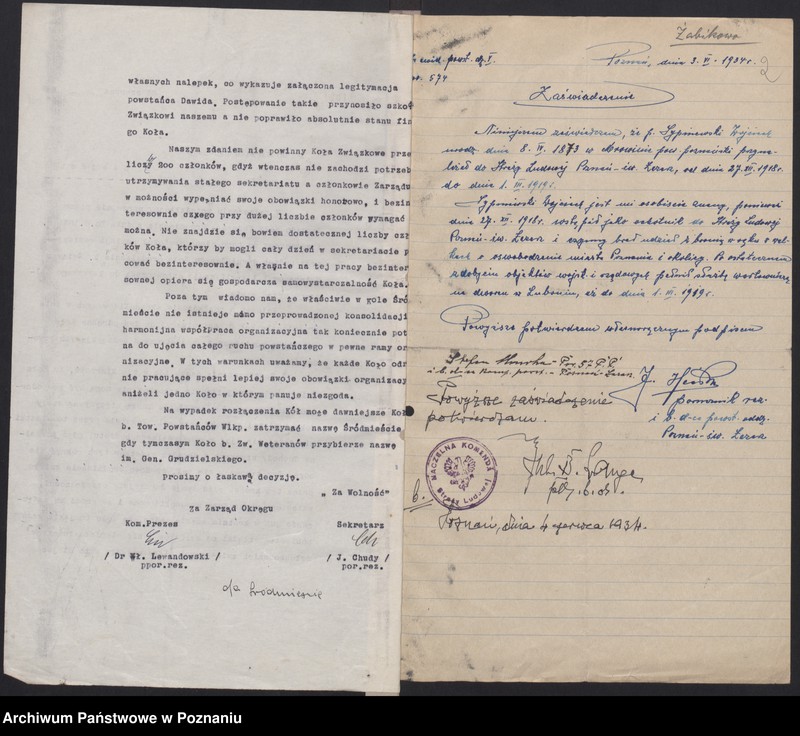 własnych nalepek, co wykazuje załączona legitymacja
powstańca Dawida. Postępowanie takie przynosiło szko
Związkowi naszemu a nie poprawiło absolutnie stanu fin
go Koła.
Naszym zdaniem nie powinny Koła Związkowe prze
liczby 200 członków, gdyż wtenczas nie zachodzi potrzeb
utrzymywania stałego sekretariatu a członkowie Zarządu
w możności wypełniać swoje obowiązki honorowo, i bezin
teresownie czego przy dużej liczbie członków wymagać
można. Nie znajdzie się bowiem dostatecznej liczby czł
ków Koła, którzy by mogli cały dzień w sekretariacie p
cować bezinteresownie. A właśnie na tej pracy bezinter
sownej opiera się gospodarcza samowystarczalność Koła.
Poza tym wiadomo nam, że właściwie w gole Śró
mieście nie istnieje mimo przeprowadzonej konsolidacji
harmonijna współpraca organizacyjna tak koniecznie pot
na do ujęcia całego ruchu powstańczego w pewne ramy or
nizacyjne. W tych warunkach uważamy, że każde Koło odr
nie pracujące spełni lepiej swoje obowiązki organizacy
aniżeli jedno Koło w którym panuje niezgoda.
Na wypadek rozłączenia Kół może dawniejsze Koł
b. Tow. Powstańców Wlkp. zatrzymać nazwę Śródmieście
gdy tymczasem Koło b. Zw. Weteranów przybierze nazwę
im. Gen. Grudzielskiego.
Prosimy o łaskawą decyzję.
„ Za Wolność"
Za Zarząd Okręgu
Kom.Prezes Sekretarz
/ Dr Wł. Lewandowski / / J. Chudy /
ppor.rez. por.rez.
d/a Środmieście
Żabikowo
Poznań, dnia 3. VI. 1934 r.
2
574
Zaświadczenie
Niniejszem zaświadczam, że p. Sypniewski Wojciech
urodz. dnia 8. IV. 1873 w
leżał do Straży Ludowej Poznań-św. Łazarz, od dnia 27. XII 1918 r.
do dnia 1. III. 1919 r.
Sypniewski Wojciech jest mi osobiście znany, ponieważ
dnia 27. XII. 1918 r. wstąpił jako ochotnik do Straży Ludowej
Poznań-św. Łazarz i czynny brał udział z bronią w ręku o wal
kach o oswobodzenie miasta Poznania i okolicy. Po ostatecznem
zdobyciu objektów wojsk. i rządowych pełnił służbę wartowniczą
na dworcu w Luboniu, aż do dnia 1. III. 1919 r.
Powyższe potwierdzam własnoręcznym podpisem
Stefan
Poznań-Łazarz
Powyższe zaświadczenie
potwierdzam.
porucznik rez.
i b. d-ca powst. oddz.
Poznań-św. Łazarz
NACZELNA KOMENDA
Straży Ludowej
Poznań, dnia 4 czerwca 1934.
Archiwum Państwowe w Poznaniu